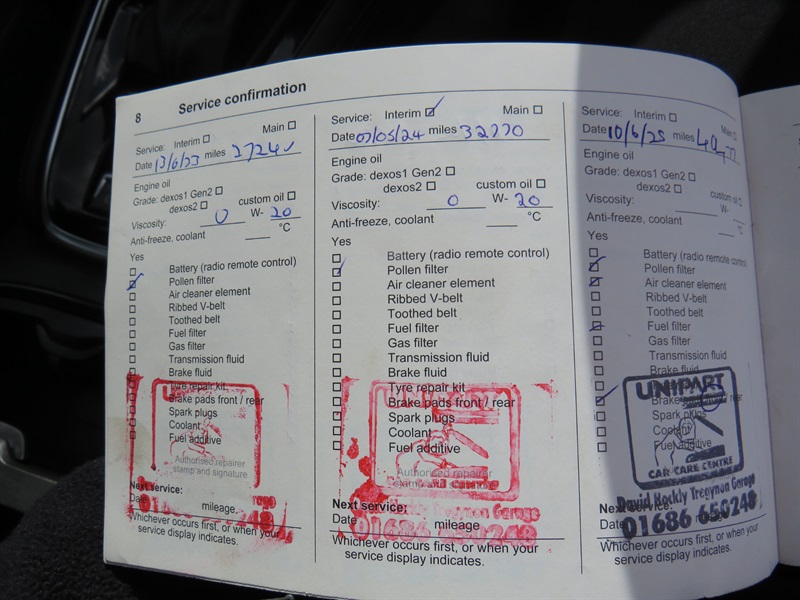 8 Service confirmation
Service: Interim ☐ Main ☐
Date 13/6/23 miles
Engine oil
Grade: dexos1 Gen2 ☐
dexos2 ☐ custom oil ☐
Viscosity: 0 W- 20
Anti-freeze, coolant °C
Yes
Battery (radio remote control)
Pollen filter
Air cleaner element
Ribbed V-belt
Toothed belt
Fuel filter
Gas filter
Transmission fluid
Brake fluid
Tyre repair kit
Brake pads front / rear
Spark plugs
Coolant
Fuel additive
Authorised repairer
stamp and signature
Next service:
Date mileage
01686 650248
Whichever occurs first, or when your
service display indicates.
Service: Interim ☑ Main ☐
Date 07/05/24 miles 32770
Engine oil
Grade: dexos1 Gen2 ☐
dexos2 ☐ custom oil ☐
Viscosity: 0 W- 20
Anti-freeze, coolant °C
Yes
Battery (radio remote control)
Pollen filter
Air cleaner element
Ribbed V-belt
Toothed belt
Fuel filter
Gas filter
Transmission fluid
Brake fluid
Tyre repair kit
Brake pads front / rear
Spark plugs
Coolant
Fuel additive
Authorised repairer
Next service:
Garage
Date mileage
01686 650248
Whichever occurs first, or when your
service display indicates.
Service: Interim ☐ Main
Date 10/6/25 miles
Engine oil
Grade: dexos1 Gen2 ☐
dexos2 ☐ custom oil ☐
Viscosity: W-
Anti-freeze, coolant °C
Yes
Battery (radio remote control)
Pollen filter
Air cleaner element
Ribbed V-belt
Toothed belt
Fuel filter
Gas filter
Transmission fluid
Brake fluid
UNIPART
Spark plugs
Coolant
Fuel additive
CAR CARE CENTRE
David Hockly Tregynon Garage
Next service:
Date mileage
01686 650248
Whichever occurs first, or when your
service display indicates.